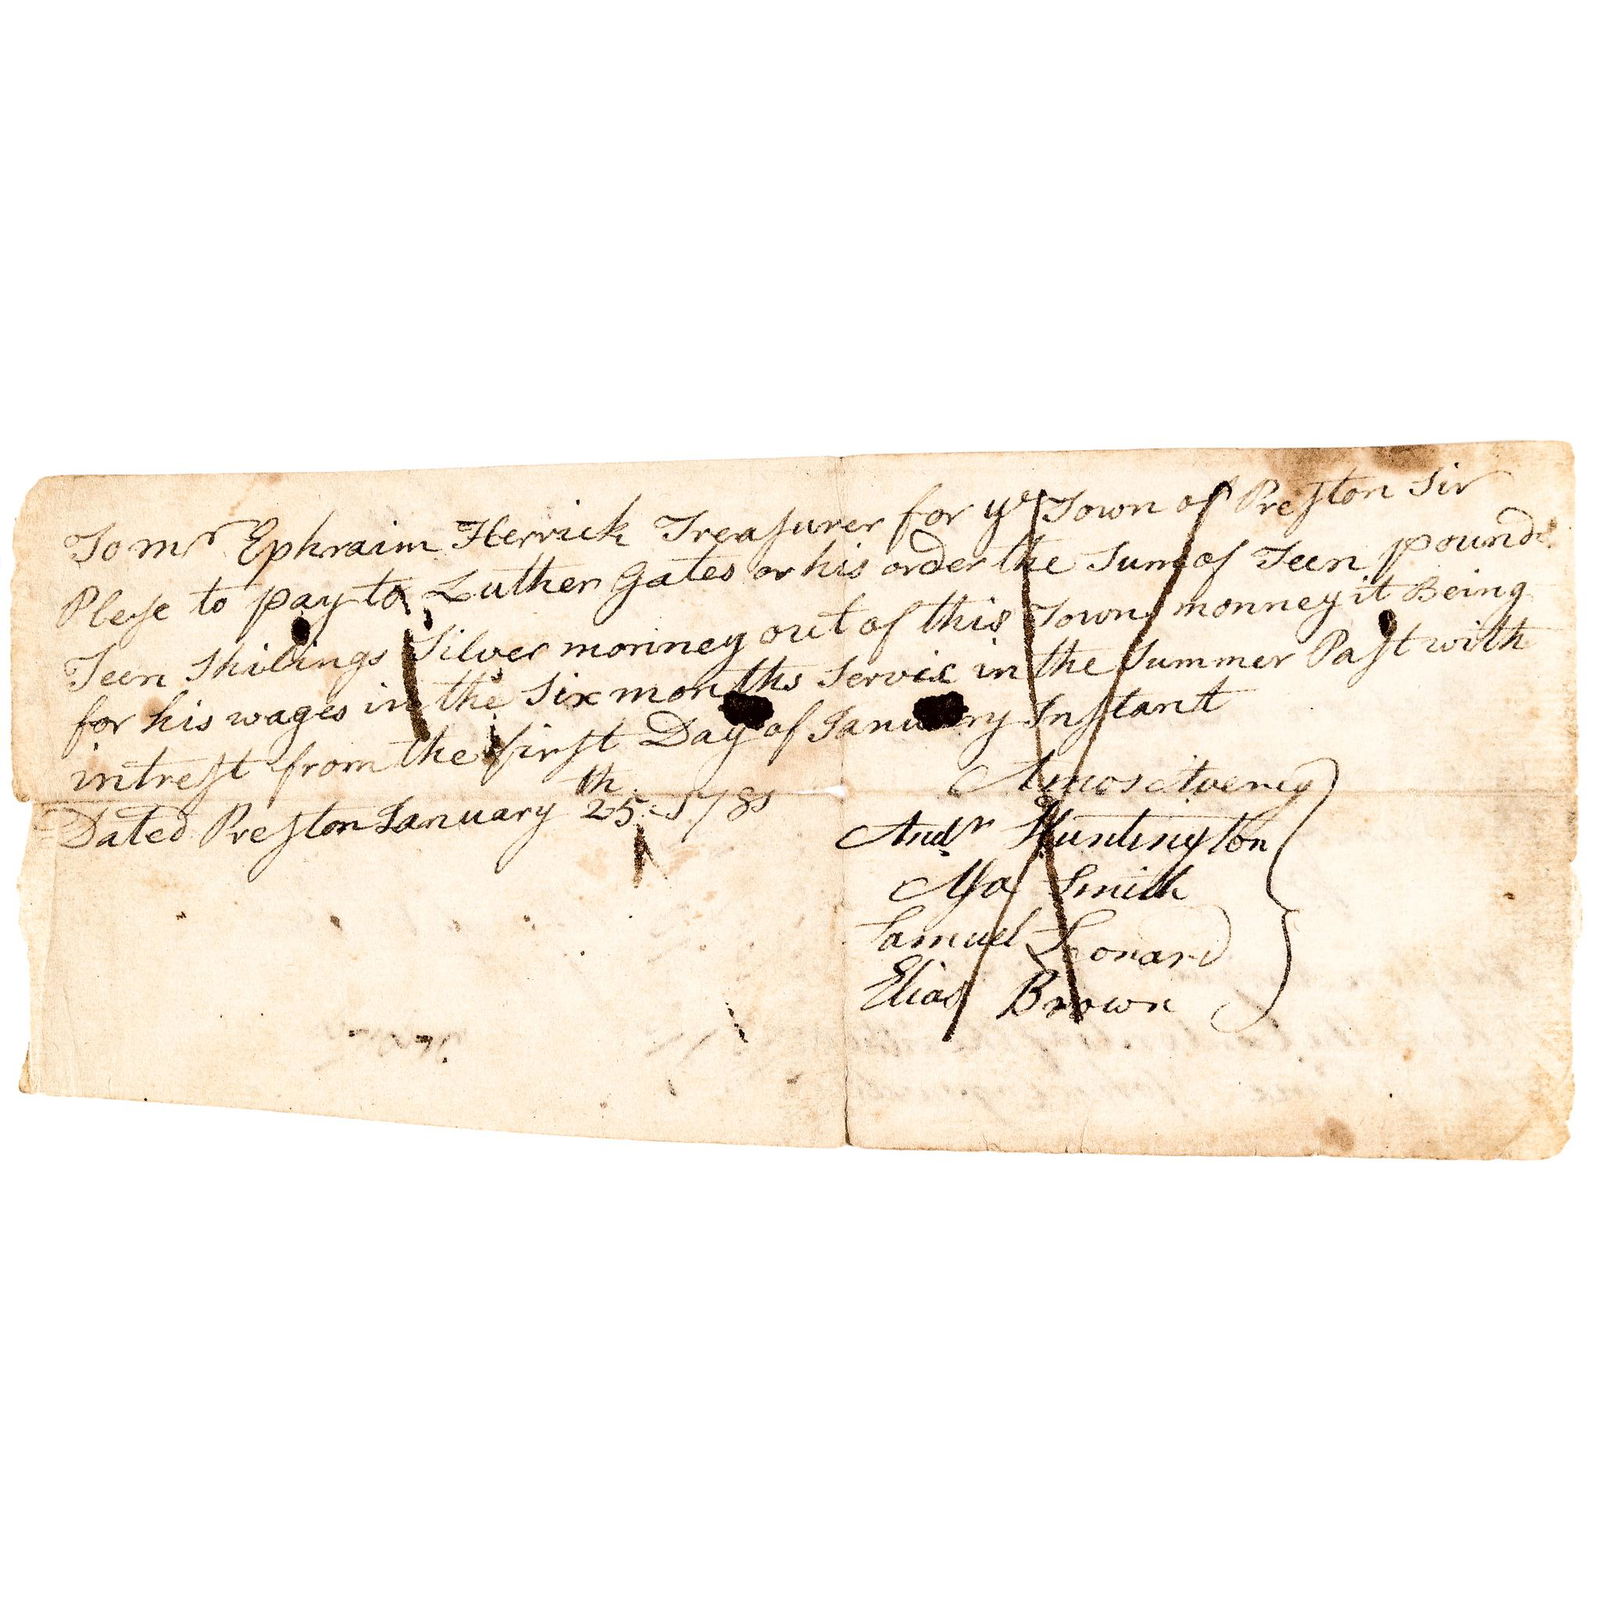 To Mr Ephraim Herrick Treasurer for ye Town of Preston Sir
Plese to pay to Luther Gates or his order the Sum of Teen pound
Teen Shilings Silver monney out of this Town monney it Being
for his wages in the Six months Servis in the Summer Past with
intrest from the first Day of January Instant
Dated Preston January 25th 1781
Amos Averey
Andw Huntington
Asa Smith
Samuel Lonard
Elias Brown